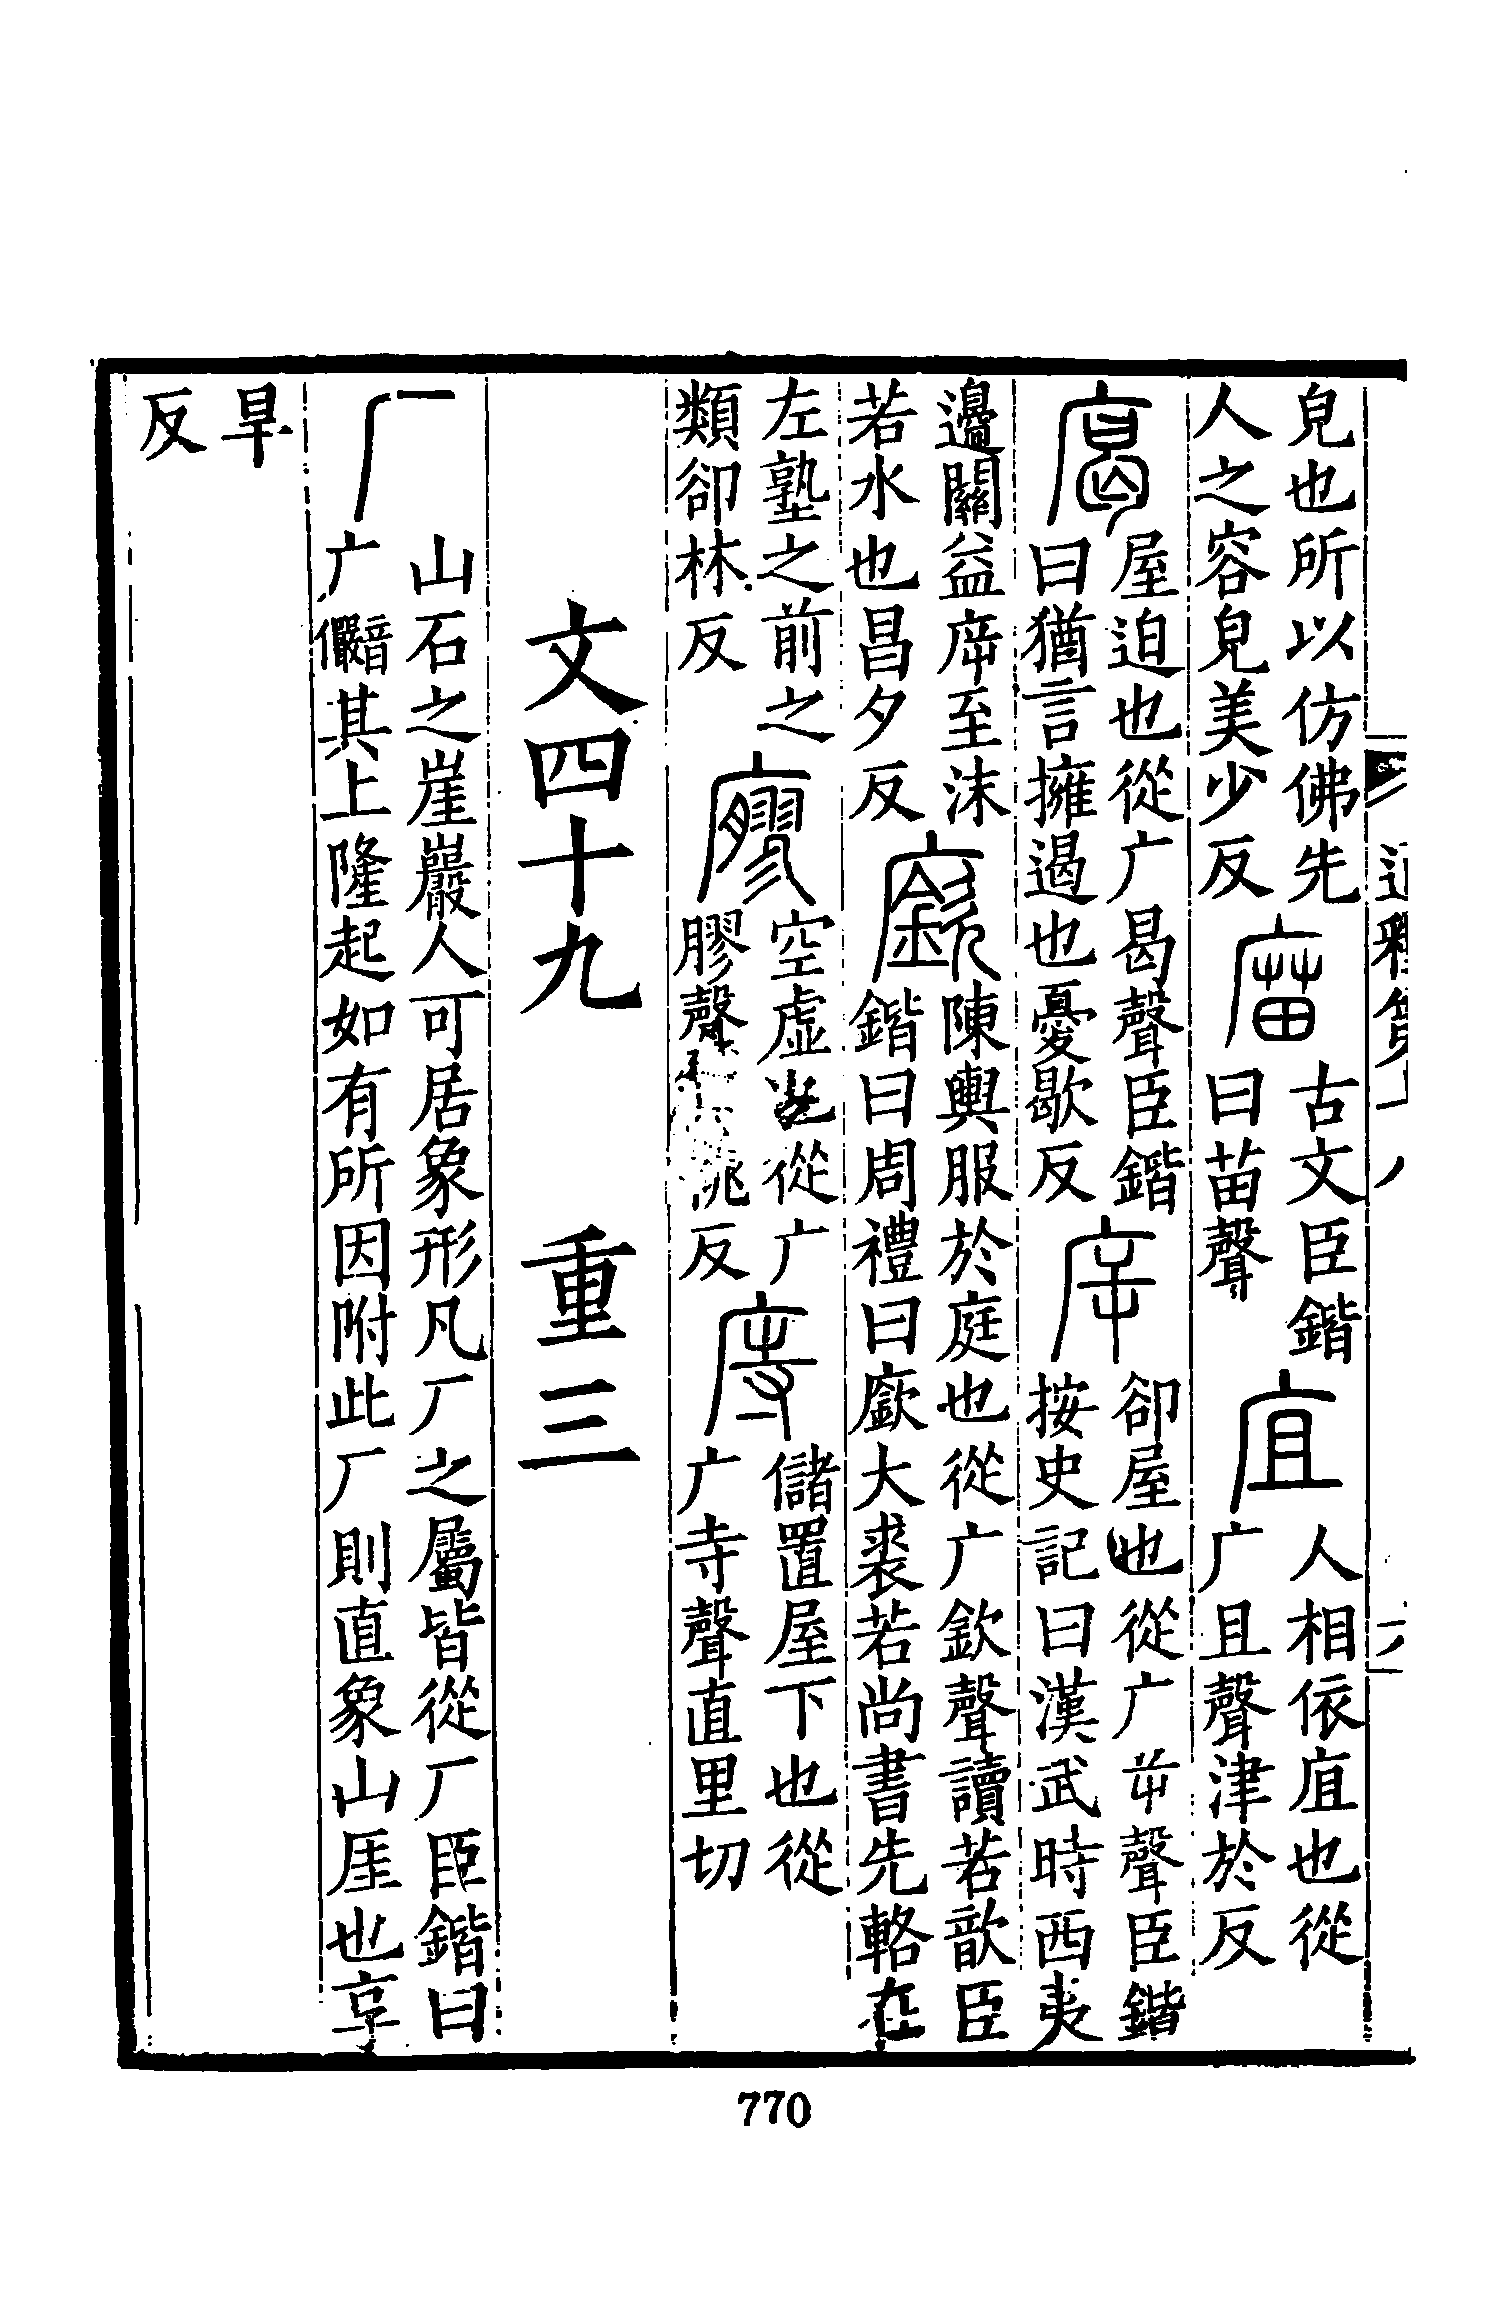 皃也所以仿佛先
人之容皃美少反
庿
古文臣鍇
曰苗聲
㡹
人相依㡹也從
广且聲津於反
屋迫也從广曷聲臣鍇
曰猶言擁遏也憂歇反
㡿
卻屋也從广屰聲臣鍇
按史記曰漢武時西夷
邊關益㡿至沬
若水也昌夕反
廞
陳輿服於庭也從广欽聲讀若歆臣
鍇曰周禮曰廞大裘若尚書先輅在
左塾之前之
類卻林反
廫
空虛也從广
膠聲反
庤
儲置屋下也從
广寺聲直里切
文四十九 重三
厂
山石之崖巖人可居象形凡厂之屬皆從厂臣鍇曰
广音儼其上隆起如有所因附此厂則直象山厓也享
旱
反
770